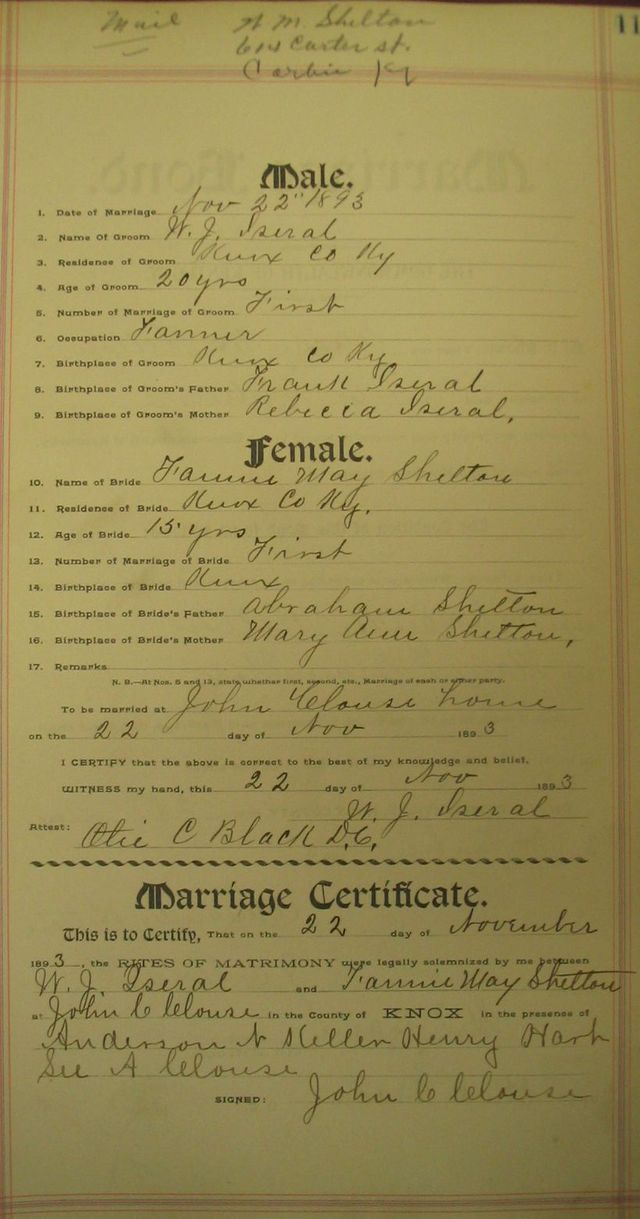 Mail W. M. Shelton 11
614 Carter st.
Corbin Ky
Male.
1. Date of Marriage Nov 22" 1893
2. Name Of Groom W. J. Iseral
3. Residence of Groom Knox Co Ky
4. Age of Groom 20 yrs
5. Number of Marriage of Groom First
6. Occupation Farmer
7. Birthplace of Groom Knox Co Ky
8. Birthplace of Groom's Father Frank Iseral
9. Birthplace of Groom's Mother Rebecca Iseral,
Female.
10. Name of Bride Fannie May Shelton
11. Residence of Bride Knox Co Ky.
12. Age of Bride 15 yrs
13. Number of Marriage of Bride First
14. Birthplace of Bride Knox
15. Birthplace of Bride's Father Abraham Shelton
16. Birthplace of Bride's Mother Mary Ann Shelton,
17. Remarks
N. B.—At Nos. 5 and 13, state whether first, second, etc., Marriage of each or either party.
To be married at John Clouse home
on the 22 day of Nov 1893
I CERTIFY that the above is correct to the best of my knowledge and belief.
WITNESS my hand, this 22 day of Nov 1893
W. J. Iseral
Attest: Otie C Black D.C.
Marriage Certificate.
This is to Certify, That on the 22 day of November
1893, the RITES OF MATRIMONY were legally solemnized by me between
W. J. Iseral and Fannie May Shelton
at John C Clouse in the County of KNOX in the presence of
Anderson N Keller Henry Hart
See A Clouse
SIGNED: John C Clouse